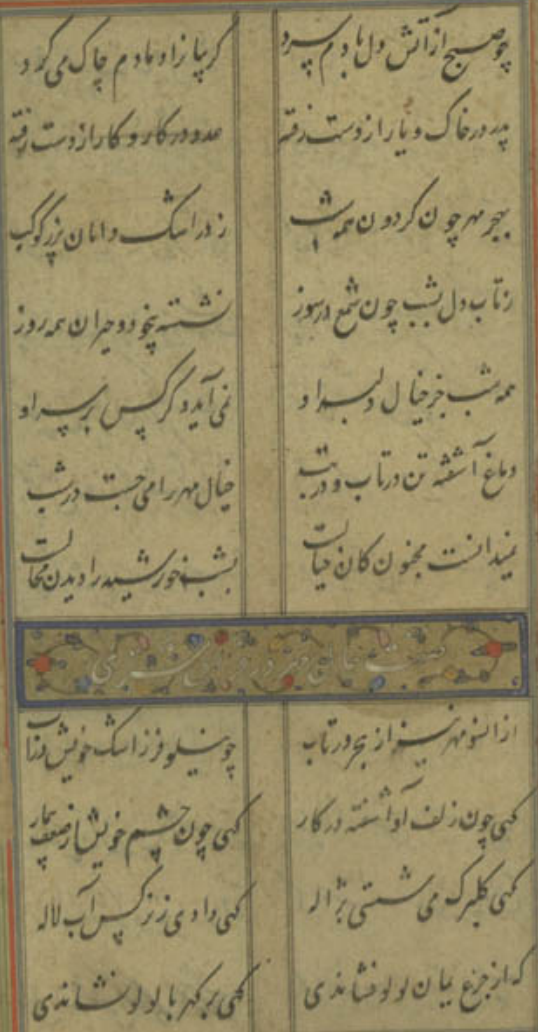 چو صبح از آتش دل بادم سرد گریبان را دمادم چاک می کرد
پدر در خاک و یار از دست رفته عدو در کار و کار از دست رفته
بهجر مهر چون کردون همه شب ز در اشک دامان پرز کوکب
ز تاب دل بشب چون شمع در سوز نشسته بیخود و حیران همه روز
همه شب جز خیال دلبر او نمی آید دگر کس بر سر او
دماغ آشفته تن در تاب و در تب خیال مهر را می جست در شب
نمیدانست مجنون کان خیالست بشب خورشید را دیدن محالست
صفت حال مهر در مشتری
ازانسو مهر نیز از هجر در تاب چو نیلوفر ز اشک خویش در آب
کهی چون زلف او آشفته در کار کهی چون چشم خویش از ضعف بیمار
کهی کلبرک می شستی بژاله کهی دادی ز نرکس آب لاله
که از جزع یمان لولو فشاندی کهی بر کهربا لولو نشاندی